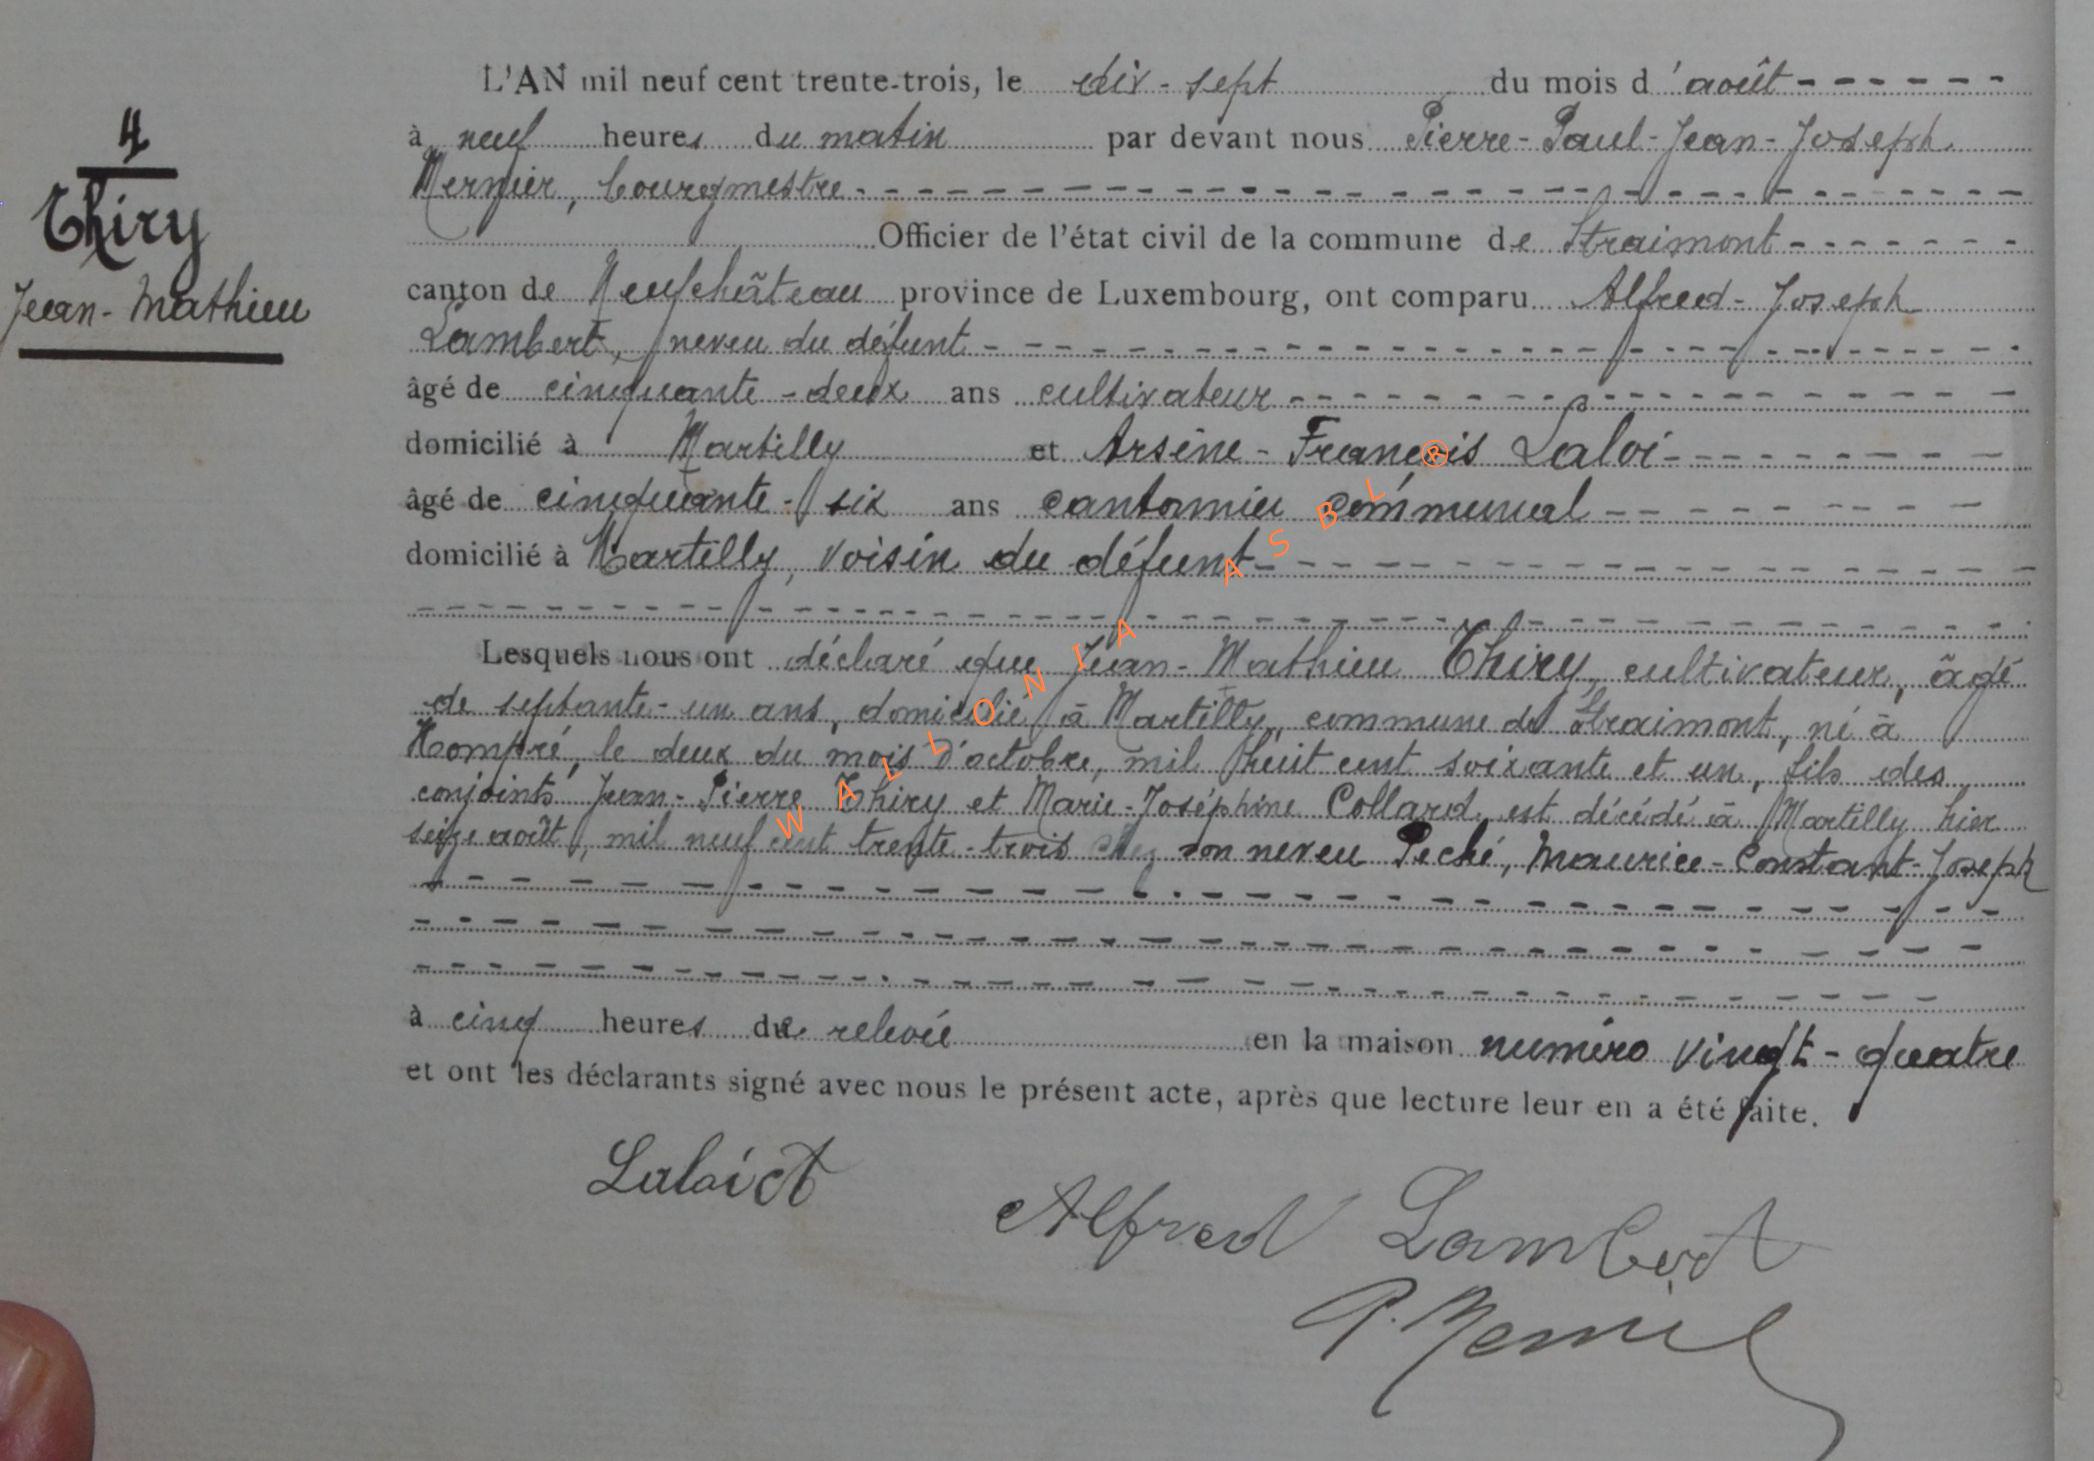 4
Thiry
Jean-Mathieu
L'AN mil neuf cent trente-trois, le dix-sept du mois d'août
à neuf heures du matin par devant nous Pierre-Paul-Jean-Joseph
Mernier, bourgmestre
Officier de l'état civil de la commune de Straimont
canton de Neufchâteau province de Luxembourg, ont comparu Alfred-Joseph
Lambert, neveu du défunt
âgé de cinquante-deux ans cultivateur
domicilié à Martilly et Arsène-François Laloi
âgé de cinquante-six ans cantonnier communal
domicilié à Martilly, voisin du défunt
Lesquels nous ont déclaré que Jean-Mathieu Thiry, cultivateur, âgé
de septante-un ans, domicilié à Martilly, commune de Straimont, né à
Hompré, le deux du mois d'octobre, mil huit cent soixante et un, fils des
conjoints Jean-Pierre Thiry et Marie-Joséphine Collard, est décédé à Martilly hier
seize août, mil neuf cent trente-trois chez son neveu Peché, Maurice-Constant-Joseph
à cinq heures de relevée en la maison numéro vingt-quatre
et ont les déclarants signé avec nous le présent acte, après que lecture leur en a été faite.
Laloi A
Alfred Lambert
P. Mernier
WALLONIA ASBL ®